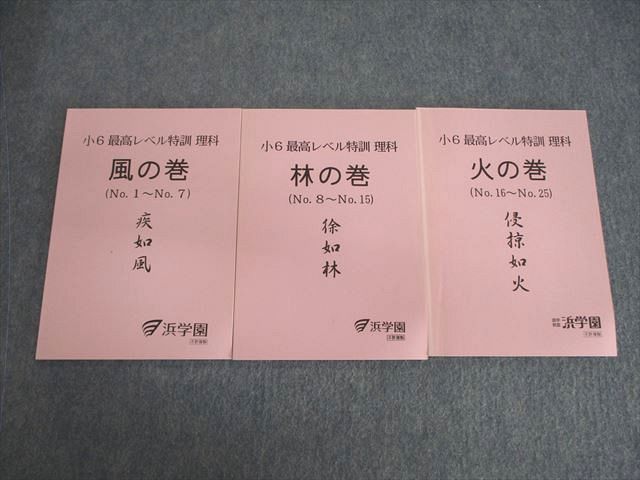 小6 最高レベル特訓 理科
風の巻
(No. 1～No. 7)
疾如風
浜学園
小6 最高レベル特訓 理科
林の巻
(No. 8～No. 15)
徐如林
浜学園
小6 最高レベル特訓 理科
火の巻
(No. 16～No. 25)
侵掠如火
浜学園